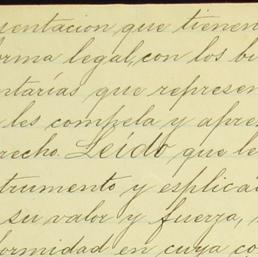 sentacion que tienen
orma legal, con los bi
ntarías que represen
les compela y apre
recho. Leído que le
trumento y esplica
su valor y fuerza,
formidad en cuya co